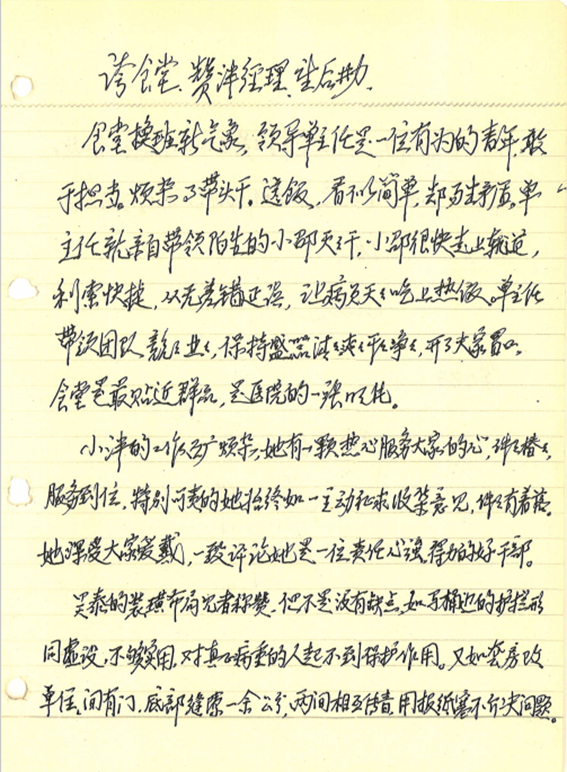 夸食堂、赞津经理、望后勤
食堂换班新气象，领导单主任是一位有为的青年，敢
于担当，烦杂事带头干。送饭，看似简单，却易生矛盾，单
主任就亲自带领陌生的小邵天天干，小邵很快走上轨道，
利索快捷，从无差错延误，让病员天天吃上热饭。单主任
带领团队兢兢业业，保持盛器清清爽爽干干净净，开了大家胃口。
食堂是最贴近群众，是医院的一张
小津的工作面广烦杂，她有一颗热心服务大家的心，件件
服务到位，特别可贵的她始终如一主动征求收集意见，件件有着落。
她深受大家爱戴，一致评论她是一位责任心强，得力的好干部。
吴泰的装璜布局记者称赞，但不是没有缺点，如马桶边的护拦形
同虚设，不够实用，对真正病重的人起不到保护作用。又如套房改
单住，间有门，底部缝隙一余公分，两间相互传音，用报纸塞不解决问题。